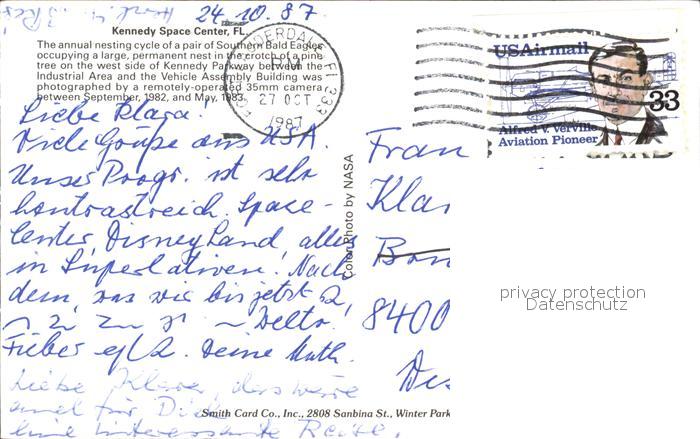 24.10.87
Kennedy Space Center, FL.
The annual nesting cycle of a pair of Southern Bald Eagles
occupying a large, permanent nest in the crotch of a pine
tree on the west side of Kennedy Parkway between the
Industrial Area and the Vehicle Assembly Building was
photographed by a remotely-operated 35mm camera
between September, 1982, and May, 1983.
27 OCT
1987
USAirmail
33
Alfred V. Verville
Aviation Pioneer
Liebe Klara!
Viele Grüße aus USA.
Unser Progr. ist sehr
kontrastreich. Space-
Center, Disneyland, alles
in Superlativen! Nach
dem, was wir bis jetzt
Fieber Deine Ruth.
Liebe Klara, das wäre
auch für Dich
eine interessante Reise.
Color Photo by NASA
Fran
Klar
8400
privacy protection
Datenschutz
Smith Card Co., Inc., 2808 Sanbina St., Winter Park